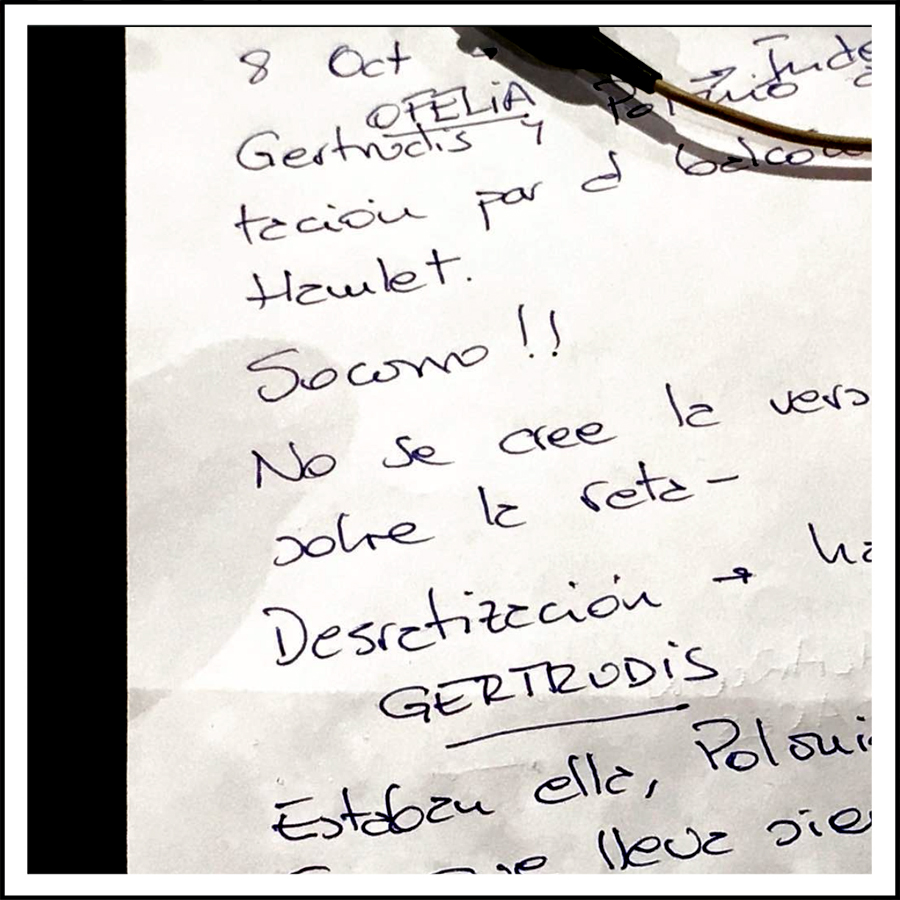 8 Oct
OFELIA
Gertrudis y Polonio
tación por el balcón
Hamlet.
Socorro!!
No se cree la vers
sobre la rata-
Desratización → ha
GERTRUDIS
Estaban ella, Poloni
lleva sie